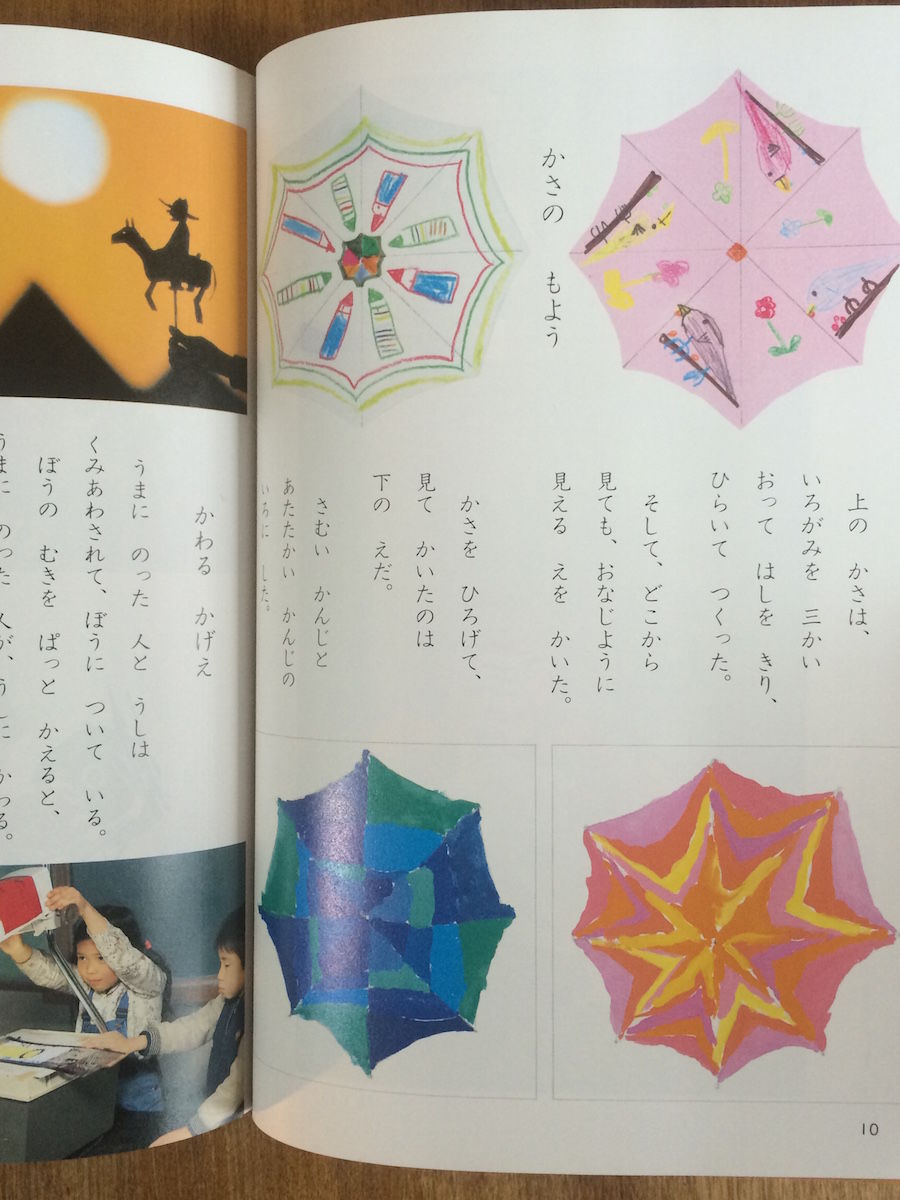 かさの もよう
上の かさは、
いろがみを 三かい
おって はしを きり、
ひらいて つくった。
そして、どこから
見ても、おなじように
見える えを かいた。
かさを ひろげて、
見て かいたのは
下の えだ。
さむい かんじと
あたたかい かんじの
いろに した。
10
かわる かげえ
うまに のった 人と うしは
くみあわされて、ぼうに ついて いる。
ぼうの むきを ぱっと かえると、
うまに のった 人が、うしに かわる。